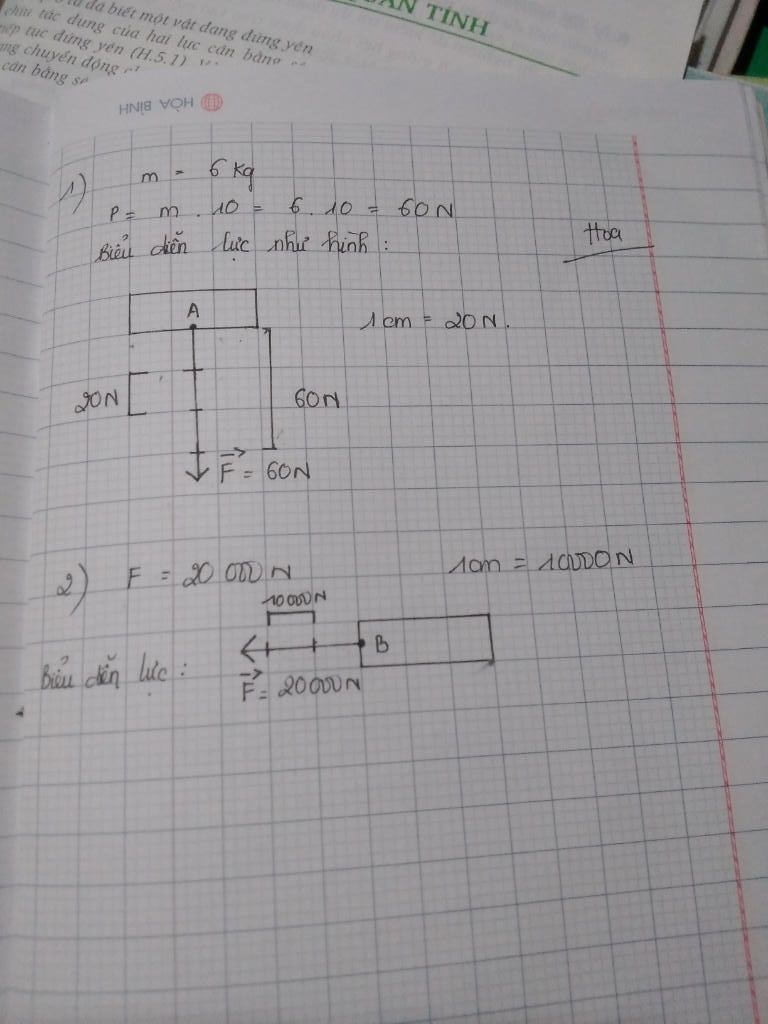 ÁN TÍNH
đã biết một vật đang đứng yên
chịu tác dụng của hai lực cân bằng
tiếp tục đứng yên (H.5.1)
chuyển động
cân bằng
HÒA BÌNH
1) m = 6 kg
P = m . 10 = 6 . 10 = 60N
Biểu diễn lực như hình :
Hoa
A
1cm = 20N.
20N
60N
F = 60N
2) F = 20 000 N
1cm = 10000N
10000N
B
Biểu diễn lực :
F = 20000N